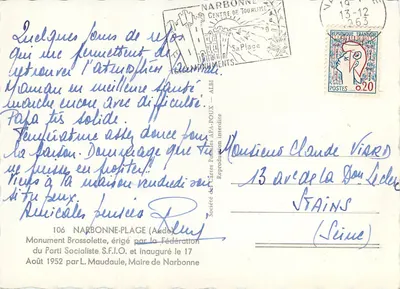 Quelques jours de repos
qui me permettent de
retrouver l'atmosphère familiale.
Maman en meilleure santé
marche encore avec difficulté.
Papa très solide.
Température assez douce pour
la saison. Dommage que tu
ne puisses en profiter.
à la maison vendredi soir
si tu peux.
Amicales pensées
106 NARBONNE-PLAGE (Aude)
Monument Brossolette, érigé par la Fédération
du Parti Socialiste S.F.I.O. et inauguré le 17
Août 1952 par L. Maudaule, Maire de Narbonne
NARBONNE
CENTRE DE TOURISME
Sa Plage
MONUMENTS
13-12
POSTES 0,20
Reproduction interdite
Monsieur Claude Viard
13 av. de la Don Leclerc
STAINS
(Seine)